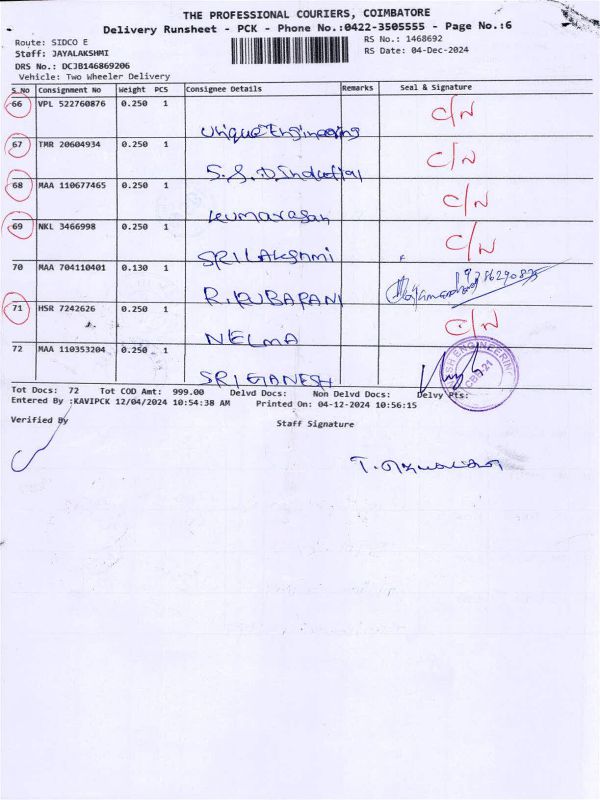 THE PROFESSIONAL COURIERS, COIMBATORE
Delivery Runsheet - PCK - Phone No.:0422-3505555 - Page No.:6
Route: SIDCO E
RS No.: 1468692
Staff: JAYALAKSHMI
RS Date: 04-Dec-2024
DRS No.: DCJB146869206
Vehicle: Two Wheeler Delivery
S.No Consignment No Weight PCS Consignee Details Remarks Seal & Signature
66 VPL 522760876 0.250 1 C/N
Unique Engineering
67 TMR 20604934 0.250 1 C/N
S.S.D.Industrial
68 MAA 110677465 0.250 1 C/N
Kumarasan
69 NKL 3466998 0.250 1 C/N
SRI LAKSHMI
70 MAA 704110401 0.130 1
R.KUBARAN
71 HSR 7242626 0.250 1 C/N
NELMA
72 MAA 110353204 0.250 1
SRI GANESH
ENGINEERING
CBE-21
Tot Docs: 72 Tot COD Amt: 999.00 Delvd Docs: Non Delvd Docs: Delvy Pts:
Entered By :KAVIPCK 12/04/2024 10:54:38 AM Printed On: 04-12-2024 10:56:15
Verified By
Staff Signature